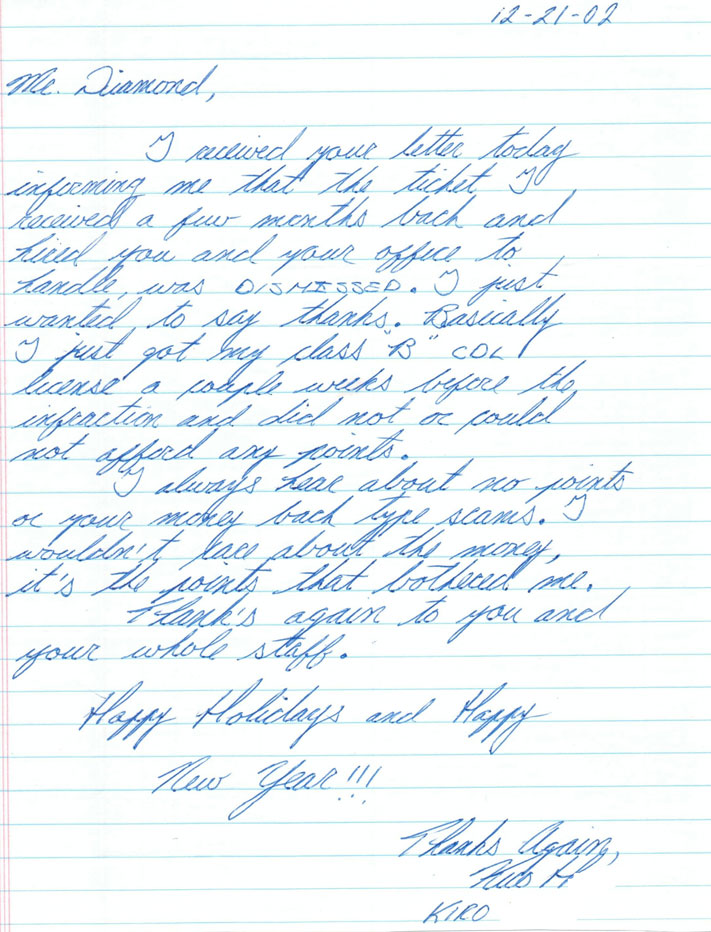 12-21-02
Mr. Diamond,
I received your letter today
informing me that the ticket I
received a few months back and
hired you and your office to
handle, was DISMISSED. I just
wanted to say thanks. Basically
I just got my class "B" CDL
license a couple weeks before the
infraction and did not or could
not afford any points.
I always hear about no points
or your money back type scams. I
wouldn't care about the money,
it's the points that bothered me.
Thank's again to you and
your whole staff.
Happy Holidays and Happy
New Year!!!
Thanks Again,
KIRO